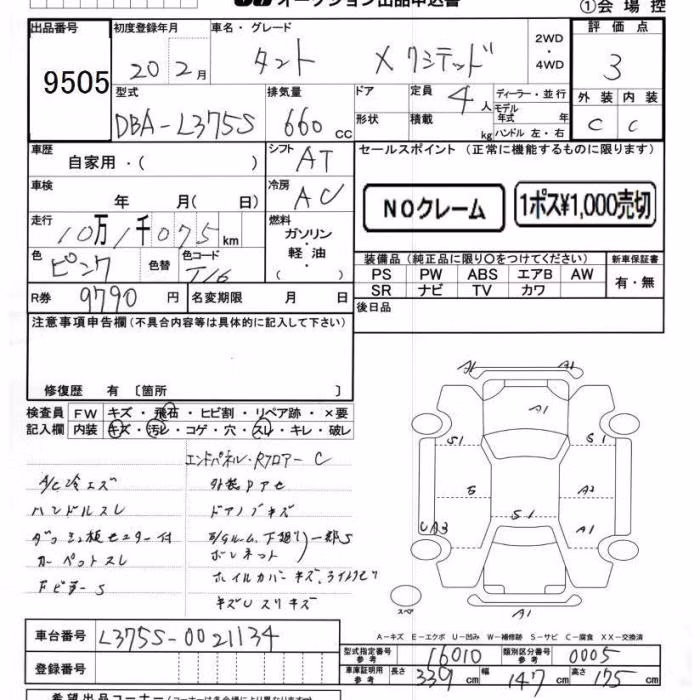 オークション出品申込書
①会場控
出品番号 初度登録年月 車名・グレード 2WD ・ 4WD 評価点
9505 20 2月 タント X リミテッド 3
型式 排気量 ドア 定員 4人 ディーラー・並行 外装 内装
DBA-L375S 660cc 形状 積載 kg モデル年式 年 C C
ハンドル 左・右
車歴 自家用・( ) シフト AT セールスポイント (正常に機能するものに限ります)
車検 年 月( 日) 冷房 AC NOクレーム 1ポス¥1,000売切
走行 10万1千075km 燃料 ガソリン・軽油・( )
色 ピンク 色替 色コード T16 装備品(純正品に限り○をつけてください) 新車保証書
PS PW ABS エアB AW 有・無
SR ナビ TV カワ
R券 9790円 名変期限 月 日 後日品
注意事項申告欄(不具合内容等は具体的に記入して下さい)
修復歴 有 〔箇所 〕
検査員 FW キズ・飛石・ヒビ割・リペア跡・×要
記入欄 内装 キズ・汚レ・コゲ・穴・スレ・キレ・破レ
エンドパネル・Rフロアー C
A/C冷エズ 外装Pアセ
ハンドルスレ ドアノブキズ
カーペットスレ ボンネット
Fピラー S
A1 A1
A1
S1 S1
S A2
S1
UA3 A1
スペア A1
A-キズ E-エクボ U-凹み W-補修跡 S-サビ C-腐食 XX-交換済
車台番号 L375S-0021134
型式指定番号 参考 16010 類別区分番号 参考 0005
登録番号 車庫証明用 参考 長さ 339cm 幅 147cm 高さ 175cm
希望出品コーナー